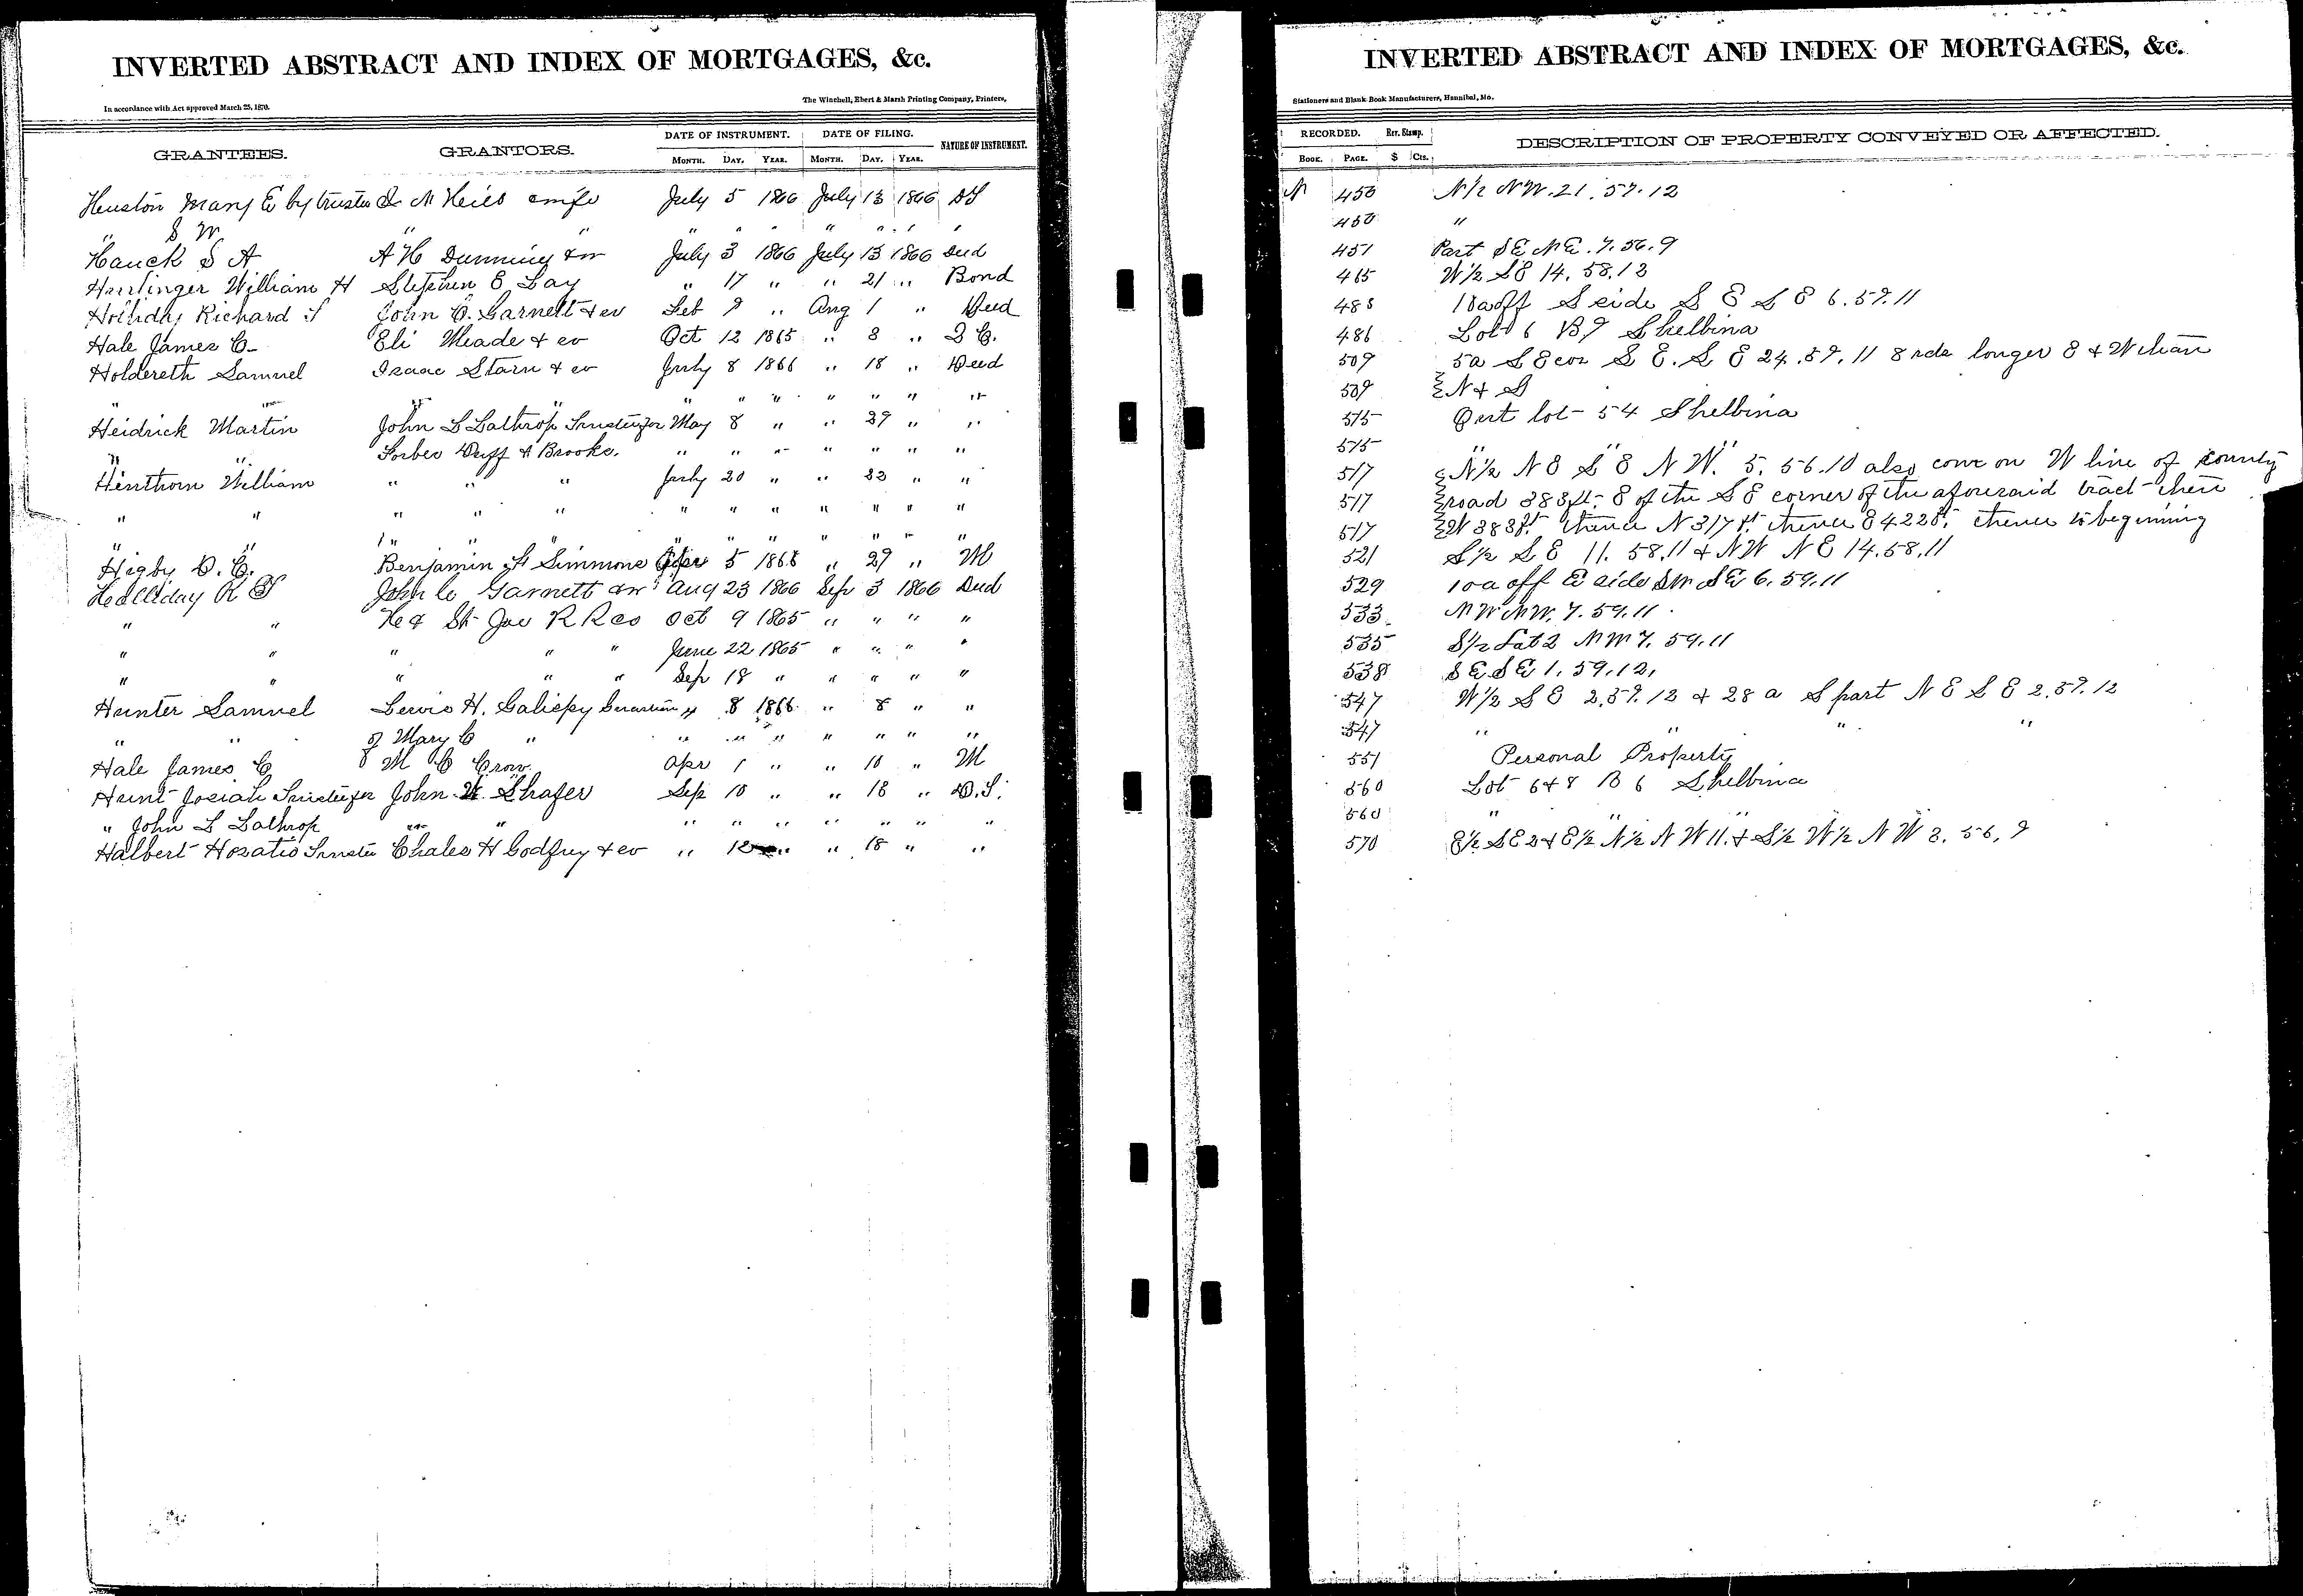 INVERTED ABSTRACT AND INDEX OF MORTGAGES, &c.
In accordance with Act approved March 25, 1870.
The Winchell, Ebert & Marsh Printing Company, Printers,
GRANTEES. GRANTORS. DATE OF INSTRUMENT. DATE OF FILING. NATURE OF INSTRUMENT.
MONTH. DAY. YEAR. MONTH. DAY. YEAR.
Heuston Mary E by trustee M Heils July 5 1866 July 13 1866 DT
" S W " " " " " "
Hauck S A A H Dunning July 3 1866 July 13 1866 Deed
William H Stephen E Lay " 17 " " 21 " Bond
Holliday Richard T John C. Garnett & Feb 9 " Aug 1 " Deed
Hale James C Eli Meade & Oct 12 1865 " 8 " Q C.
Holdereth Samuel Isaac Starn & July 8 1866 " 18 " Deed
" " " " " " " " " "
Heidrick Martin John L Lathrop Trustee for May 8 " " 29 " "
" " Duff & Brooks. " " " " " " "
Henthorn William " " " July 20 " " 22 " "
" " " " " " " " " " " "
" " " " " " " " " " " "
Higby C. C. Benjamin Simmons Apr 5 1866 " 29 " M
Holliday R T John C Garnett Aug 23 1866 Sep 3 1866 Deed
" " H & St Joe R R Co Oct 9 1865 " " " "
" " " " " June 22 1865 " " " "
" " " " " Sep 18 " " " " "
Hunter Samuel Lewis H. " 8 1866 " 8 " "
" " of Mary C " " " " " " " "
Hale James C M C Crow Apr 1 " " 10 " M
Hunt Josiah Trustee for John Shafer Sep 10 " " 18 " D.T.
" John L Lathrop " " " " " " " " "
Halbert Horatio Trustee Charles H Godfrey & " 12 " " 18 " "
INVERTED ABSTRACT AND INDEX OF MORTGAGES, &c.
Stationers and Blank Book Manufacturers, Hannibal, Mo.
RECORDED. Rev. Stamp. DESCRIPTION OF PROPERTY CONVEYED OR AFFECTED.
BOOK. PAGE. $ Cts.
N 450 N 1/2 NW. 21. 57. 12
450 "
451 Part SE NE. 7. 56. 9
465 W 1/2 SE 14. 58. 12
485 10a off S side S E S E 6. 59. 11
486 Lot 6 B 9 Shelbina
509 5a S E cor S E. S E 24. 59. 11 8 rds longer E & W than
509 N & S
515 Out lot 54 Shelbina
515 " "
517 N 1/2 N E S E N W. 5. 56. 10 also com on W line of county
517 road 383 ft E of the S E corner of the aforesaid tract
517 W 383 ft thence N 317 ft thence E 422 ft thence to beginning
521 S 1/2 S E 11. 58. 11 & N W N E 14. 58. 11
529 10 a off E side SW SE 6. 59. 11
533 N W N W. 7. 59. 11
535 S 1/2 Lot 2 N W 7. 59. 11
538 S E S E 1. 59. 12.
547 W 1/2 S E 2. 57. 12 & 28 a S part N E S E 2. 57. 12
547 " " "
551 Personal Property
560 Lot 6 & 8 B 6 Shelbina
560 " " "
570 E 1/2 S E 2 & E 1/2 N 1/2 N W 11. & S 1/2 W 1/2 N W 2. 56. 9